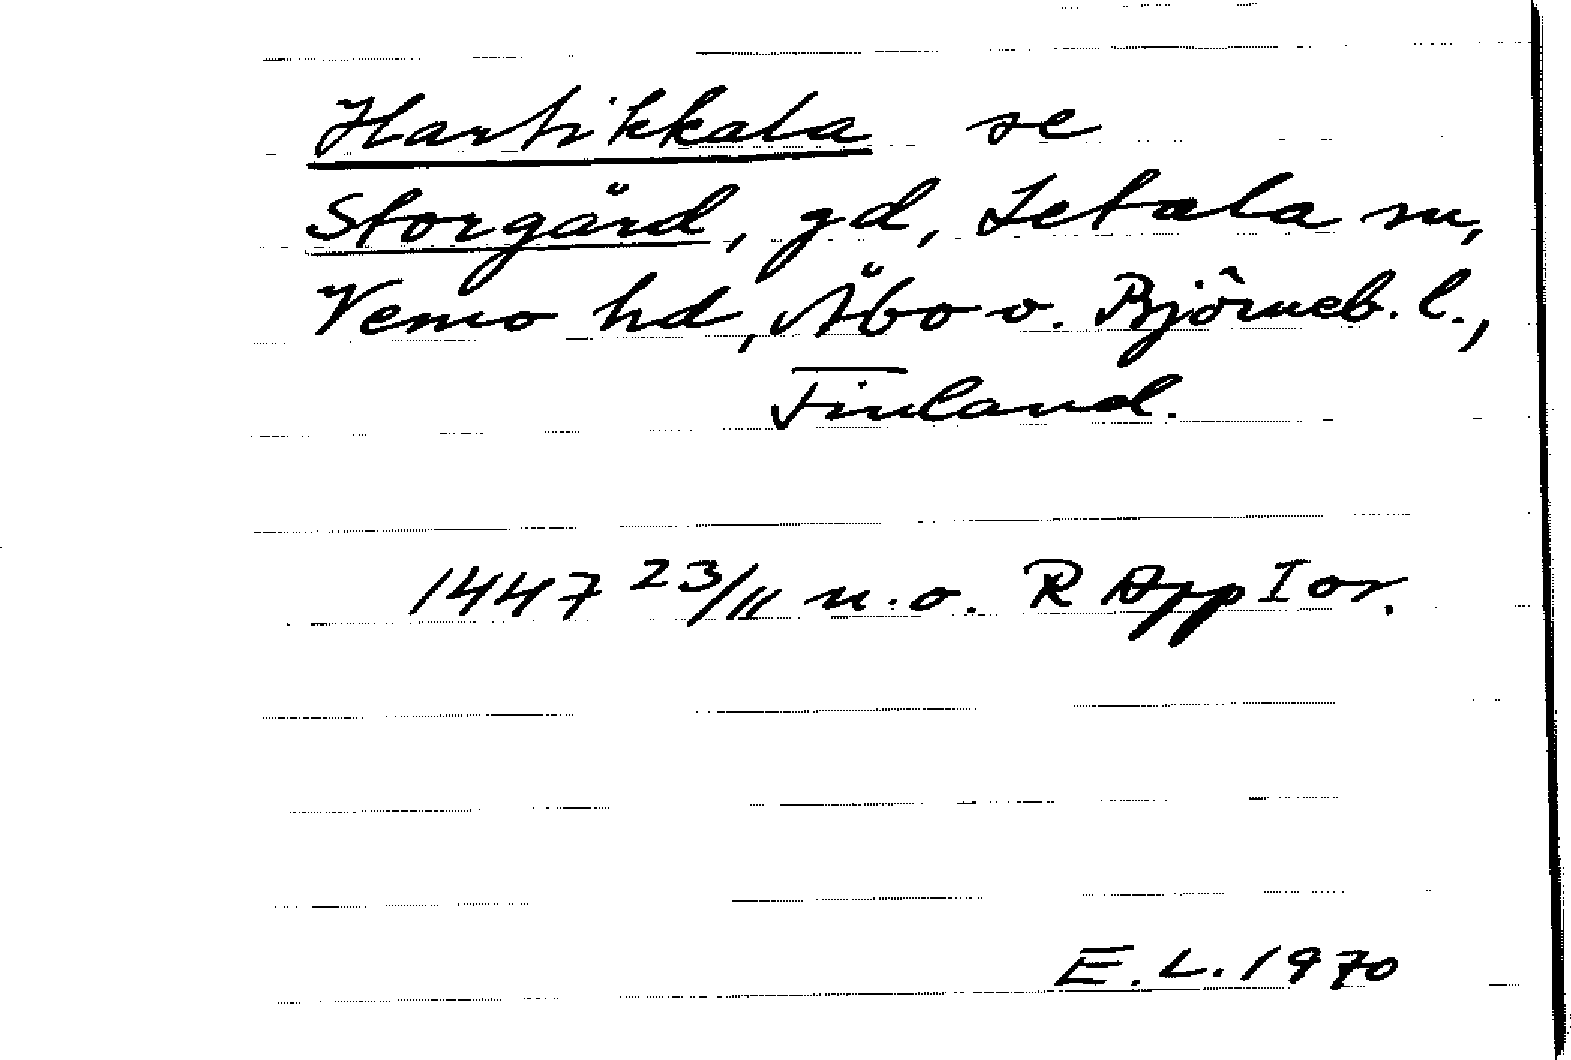 Hartikkala se
Storgård, gd, Letala sn,
Vemo hd, Åbo o. Björneb. l.,
Finland.
1447 23/11 u.o. R App I or.
E.L. 1970